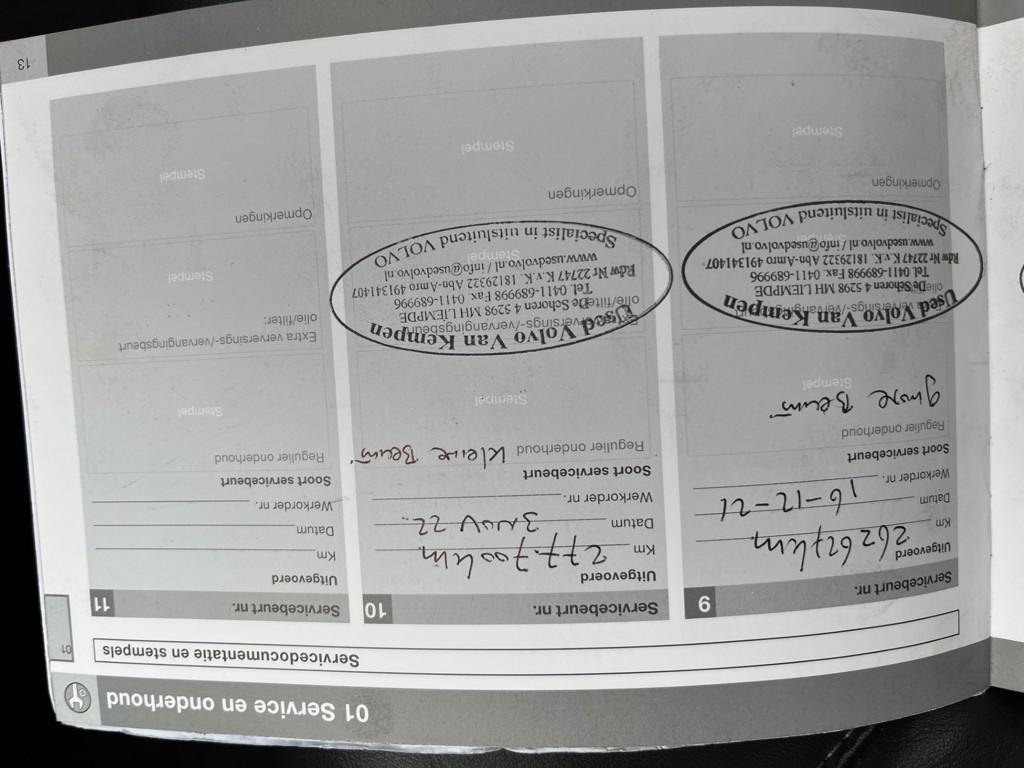 01 Service en onderhoud
Servicedocumentatie en stempels
01
Servicebeurt nr. 9
Uitgevoerd
Km 262627km
Datum 16-12-21
Werkorder nr.
Soort servicebeurt
Regulier onderhoud
Stempel
Used Volvo Van Kempen
De Schoren 4 5298 MH LIEMPDE
Tel. 0411-689998 Fax. 0411-689996
Rdw Nr 22747 K.v.K. 18129322 Abn-Amro 491341407
www.usedvolvo.nl / info@usedvolvo.nl
Specialist in uitsluitend VOLVO
Opmerkingen
Stempel
Servicebeurt nr. 10
Uitgevoerd
Km 277.700km
Datum 3 nov 22
Werkorder nr.
Soort servicebeurt
Regulier onderhoud Kleine Beurt
Stempel
olie/filter:
Used Volvo Van Kempen
De Schoren 4 5298 MH LIEMPDE
Tel. 0411-689998 Fax. 0411-689996
Rdw Nr 22747 K.v.K. 18129322 Abn-Amro 491341407
www.usedvolvo.nl / info@usedvolvo.nl
Specialist in uitsluitend VOLVO
Opmerkingen
Stempel
Servicebeurt nr. 11
Uitgevoerd
Km
Datum
Werkorder nr.
Soort servicebeurt
Regulier onderhoud
Stempel
Extra verversings-/vervangingsbeurt
olie/filter:
Stempel
Opmerkingen
Stempel
13